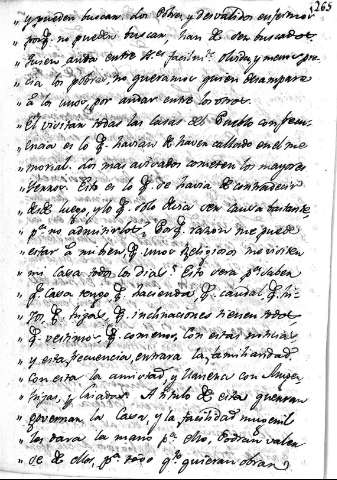 265
„ y pueden buscar. Los Pobres, y desvalidos enfermos
„ porq.e no pueden buscar, han de ser buscados.
„ Quien anda entre facilm.te olvida, y menos pre-
„ cia los pobres: no queramos quien desampare
„ à los unos, por andar entre los otros.
„ El visitar todas las casas del Pueblo con frecu-
„ encia es lo q.e havian de haver callado en el me-
„ morial. Los mas avisados cometen los mayores
„ Yerros. Esto es lo q.e se havia de contradecir
„ desde luego, y lo q.e solo devia ser causa bastante
„ p.a no admitirlos. Por q.e razon me puede
„ estar à mi bien, q.e unos Religiosos me visiten
„ mi casa todos los dias? Esto sera p.a saber
„ q.e casa tengo, q.e hacienda, q.e caudal, q.e hi-
„ jos, q.e hijas, q.e inclinaciones tienen todos
„ q.e vestimos, q.e comemos. Con estas noticias
„ y esta frecuencia, entrara la familiaridad,
„ con esta la amistad, y llaneza con Muger
„ hijas, y Criados. A titulo de esto querran
„ governar la Casa, y la facilidad mugeril
„ les dara la mano p.a ello, Podran valer
„ se de ellos, p.a todo q.to quieran obrar